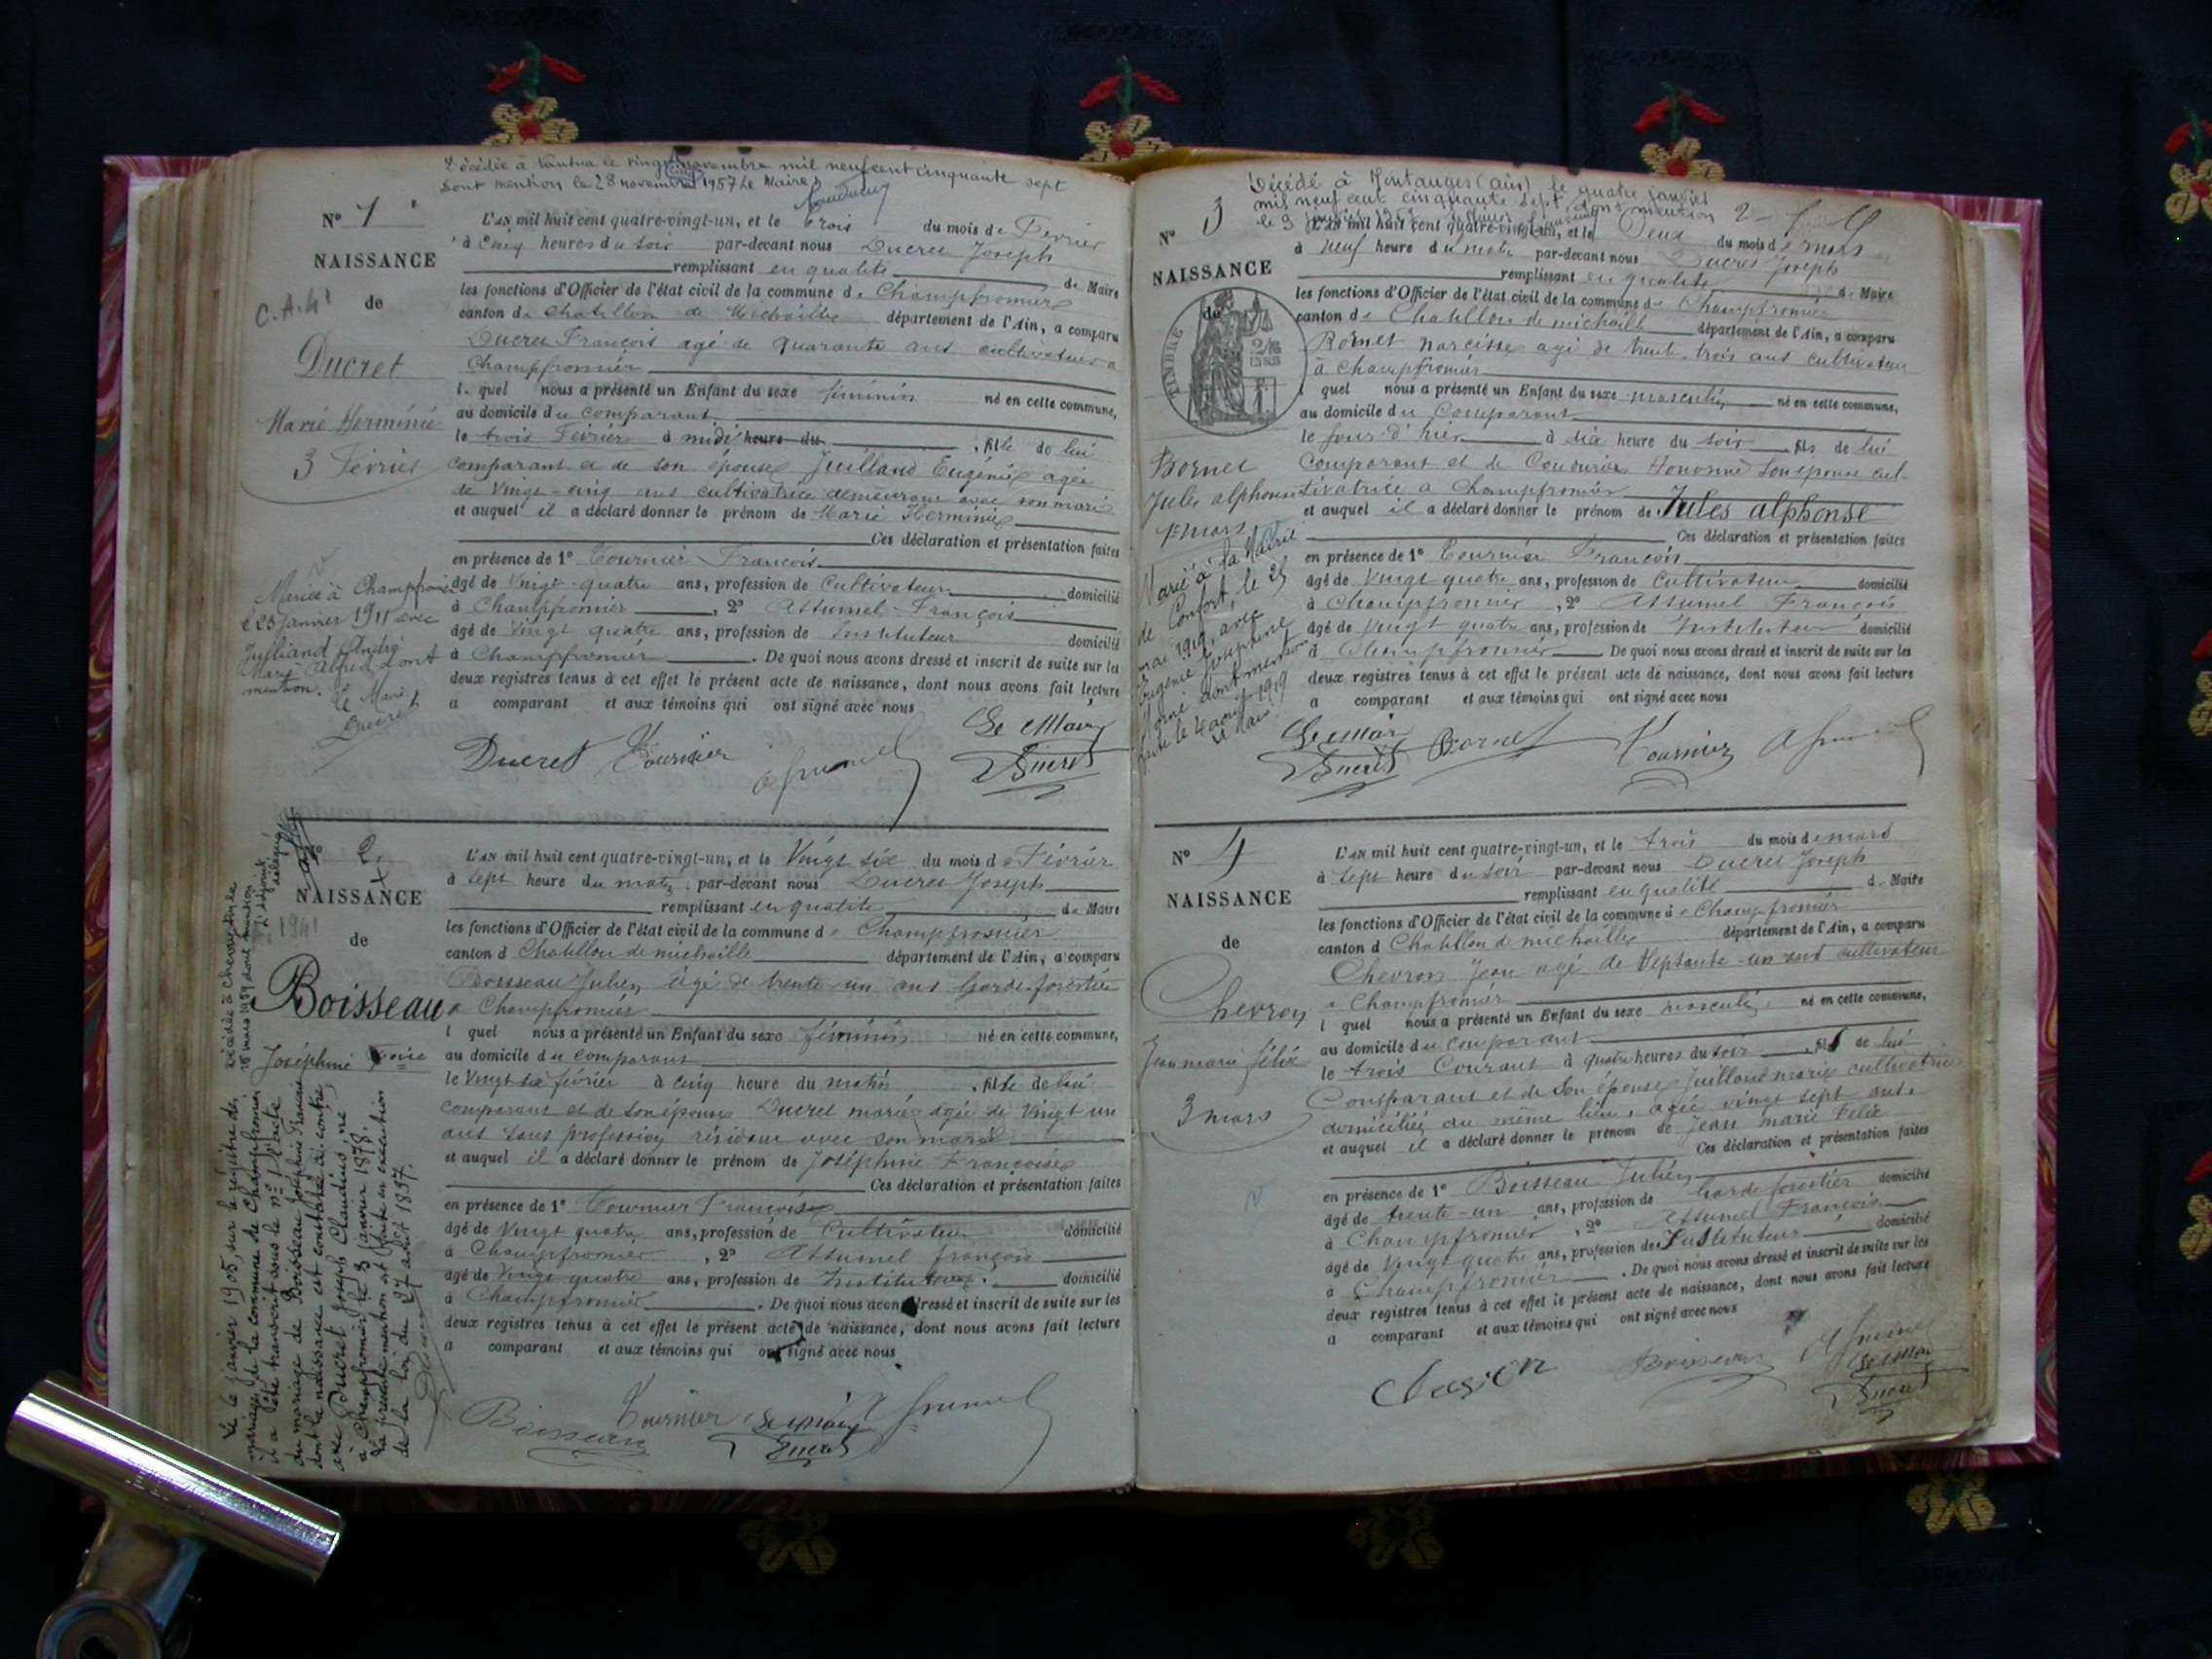 Décédée à Nantua le vingt novembre mil neuf cent cinquante sept
dont mention le 28 novembre 1957 Le Maire
N° 1
NAISSANCE
de
C.A.41
Ducret
Marie Herminie
3 Février
Mariée à Champfromier
le 23 Janvier 1911 avec
Julliand André
Marie Alfred dont
mention. Le Maire
Ducret
L'AN mil huit cent quatre-vingt-un, et le trois du mois de Février
à cinq heures du soir par-devant nous Ducret Joseph
remplissant en qualité de Maire
les fonctions d'Officier de l'état civil de la commune de Champfromier
canton de Chatillon de Michaille département de l'Ain, a comparu
Ducret François agé de quarante ans cultivateur à
Champfromier
l quel nous a présenté un Enfant du sexe féminin né en cette commune,
au domicile du comparant
le trois Février à midi heure du , fille de lui
comparant et de son épouse Juilland Eugénie agée
de vingt-cinq ans cultivatrice demeurant avec son mari
et auquel il a déclaré donner le prénom de Marie Herminie
Ces déclaration et présentation faites
en présence de 1° Tournier François
âgé de Vingt-quatre ans, profession de Cultivateur domicilié
à Champfromier , 2° Assumel François
âgé de Vingt quatre ans, profession de Instituteur domicilié
à Champfromier . De quoi nous avons dressé et inscrit de suite sur les
deux registres tenus à cet effet le présent acte de naissance, dont nous avons fait lecture
a comparant et aux témoins qui ont signé avec nous
Le Maire
Ducret Tournier Assumel Ducret
2
NAISSANCE
1941
de
Boisseau
Joséphine Fçoise
Décédée à
18 mars 1959 dont mention
Le 6 janvier 1905, sur le régistre de
mariage de la commune de Champfromier
il a été transcrit sous le n° 1 l'acte
du mariage de Boisseau Joséphine Françoise
dont la naissance est constatée ci-contre,
avec Ducret Joseph Claudius, né
à Champfromier le 3 janvier 1878.
La présente mention est faite en exécution
de la loi du 17 août 1897.
L'AN mil huit cent quatre-vingt-un, et le Vingt six du mois de Février
à Sept heure du matin par-devant nous Ducret Joseph
remplissant en qualité de Maire
les fonctions d'Officier de l'état civil de la commune de Champfromier
canton d Chatillon de michaille département de l'Ain, a comparu
Boisseau Julien âgé de trente-un ans Garde-forestier
à Champfromier
l quel nous a présenté un Enfant du sexe féminin né en cette commune,
au domicile du comparant
le Vingt six février à cinq heure du matin , fille de lui
comparant et de son épouse Ducret marie agée de vingt un
ans sans profession résidant avec son mari
et auquel il a déclaré donner le prénom de Joséphine Françoise
Ces déclaration et présentation faites
en présence de 1° Tournier François
âgé de Vingt quatre ans, profession de Cultivateur domicilié
à Champfromier , 2° Assumel françois
âgé de Vingt quatre ans, profession de Instituteur domicilié
à Champfromier . De quoi nous avons dressé et inscrit de suite sur les
deux registres tenus à cet effet le présent acte de naissance, dont nous avons fait lecture
a comparant et aux témoins qui ont signé avec nous
Boisseau Tournier Le Maire Assumel
Ducret
Décédé à Montanges (Ain) le quatre janvier
mil neuf cent cinquante sept dont mention
N° 3
NAISSANCE
de
TIMBRE
Bornet
Jules alphonse
1er mars
Marié à la Mairie
de Confort, le 25
mai 1919, avec
Eugénie Joséphine
dont mention
faite le 4 août 1919
Le Maire
L'AN mil huit cent quatre-vingt-un, et le Deux du mois de mars
à neuf heure du matin par-devant nous Ducret Joseph
remplissant en qualité de Maire
les fonctions d'Officier de l'état civil de la commune de Champfromier
canton de Chatillon de michaille département de l'Ain, a comparu
Bornet narcisse agé de trente-trois ans cultivateur
à Champfromier
l quel nous a présenté un Enfant du sexe masculin né en cette commune,
au domicile du Comparant
le jour d'hier à dix heure du soir fils de lui
Comparant et de Coudurier Honorine son épouse cul-
tivatrice à Champfromier
et auquel il a déclaré donner le prénom de Jules alphonse
Ces déclaration et présentation faites
en présence de 1° Tournier François
âgé de Vingt quatre ans, profession de Cultivateur domicilié
à Champfromier , 2° Assumel François
âgé de Vingt quatre ans, profession de Instituteur domicilié
à Champfromier De quoi nous avons dressé et inscrit de suite sur les
deux registres tenus à cet effet le présent acte de naissance, dont nous avons fait lecture
a comparant et aux témoins qui ont signé avec nous
Le Maire Bornet Tournier Assumel
Ducret
N° 4
NAISSANCE
de
Chevron
Jean marie félix
3 mars
L'AN mil huit cent quatre-vingt-un, et le trois du mois de mars
à Sept heure du soir par-devant nous Ducret Joseph
remplissant en qualité de Maire
les fonctions d'Officier de l'état civil de la commune de Champfromier
canton d Chatillon de michaille département de l'Ain, a comparu
Chevron Jean agé de Septante-un ans cultivateur
à Champfromier
l quel nous a présenté un Enfant du sexe masculin né en cette commune,
au domicile du comparant
le trois Courant à quatre heures du soir , fils de lui
Comparant et de son épouse Juilland marie cultivatrice
domiciliée au même lieu, agée vingt sept ans.
et auquel il a déclaré donner le prénom de Jean marie Félix
Ces déclaration et présentation faites
en présence de 1° Boisseau Julien
âgé de trente-un ans, profession de Garde forestier domicilié
à Champfromier , 2° Assumel François
âgé de Vingt quatre ans, profession de Instituteur domicilié
à Champfromier . De quoi nous avons dressé et inscrit de suite sur les
deux registres tenus à cet effet le présent acte de naissance, dont nous avons fait lecture
a comparant et aux témoins qui ont signé avec nous
Boisseau Assumel
Le Maire
Ducret